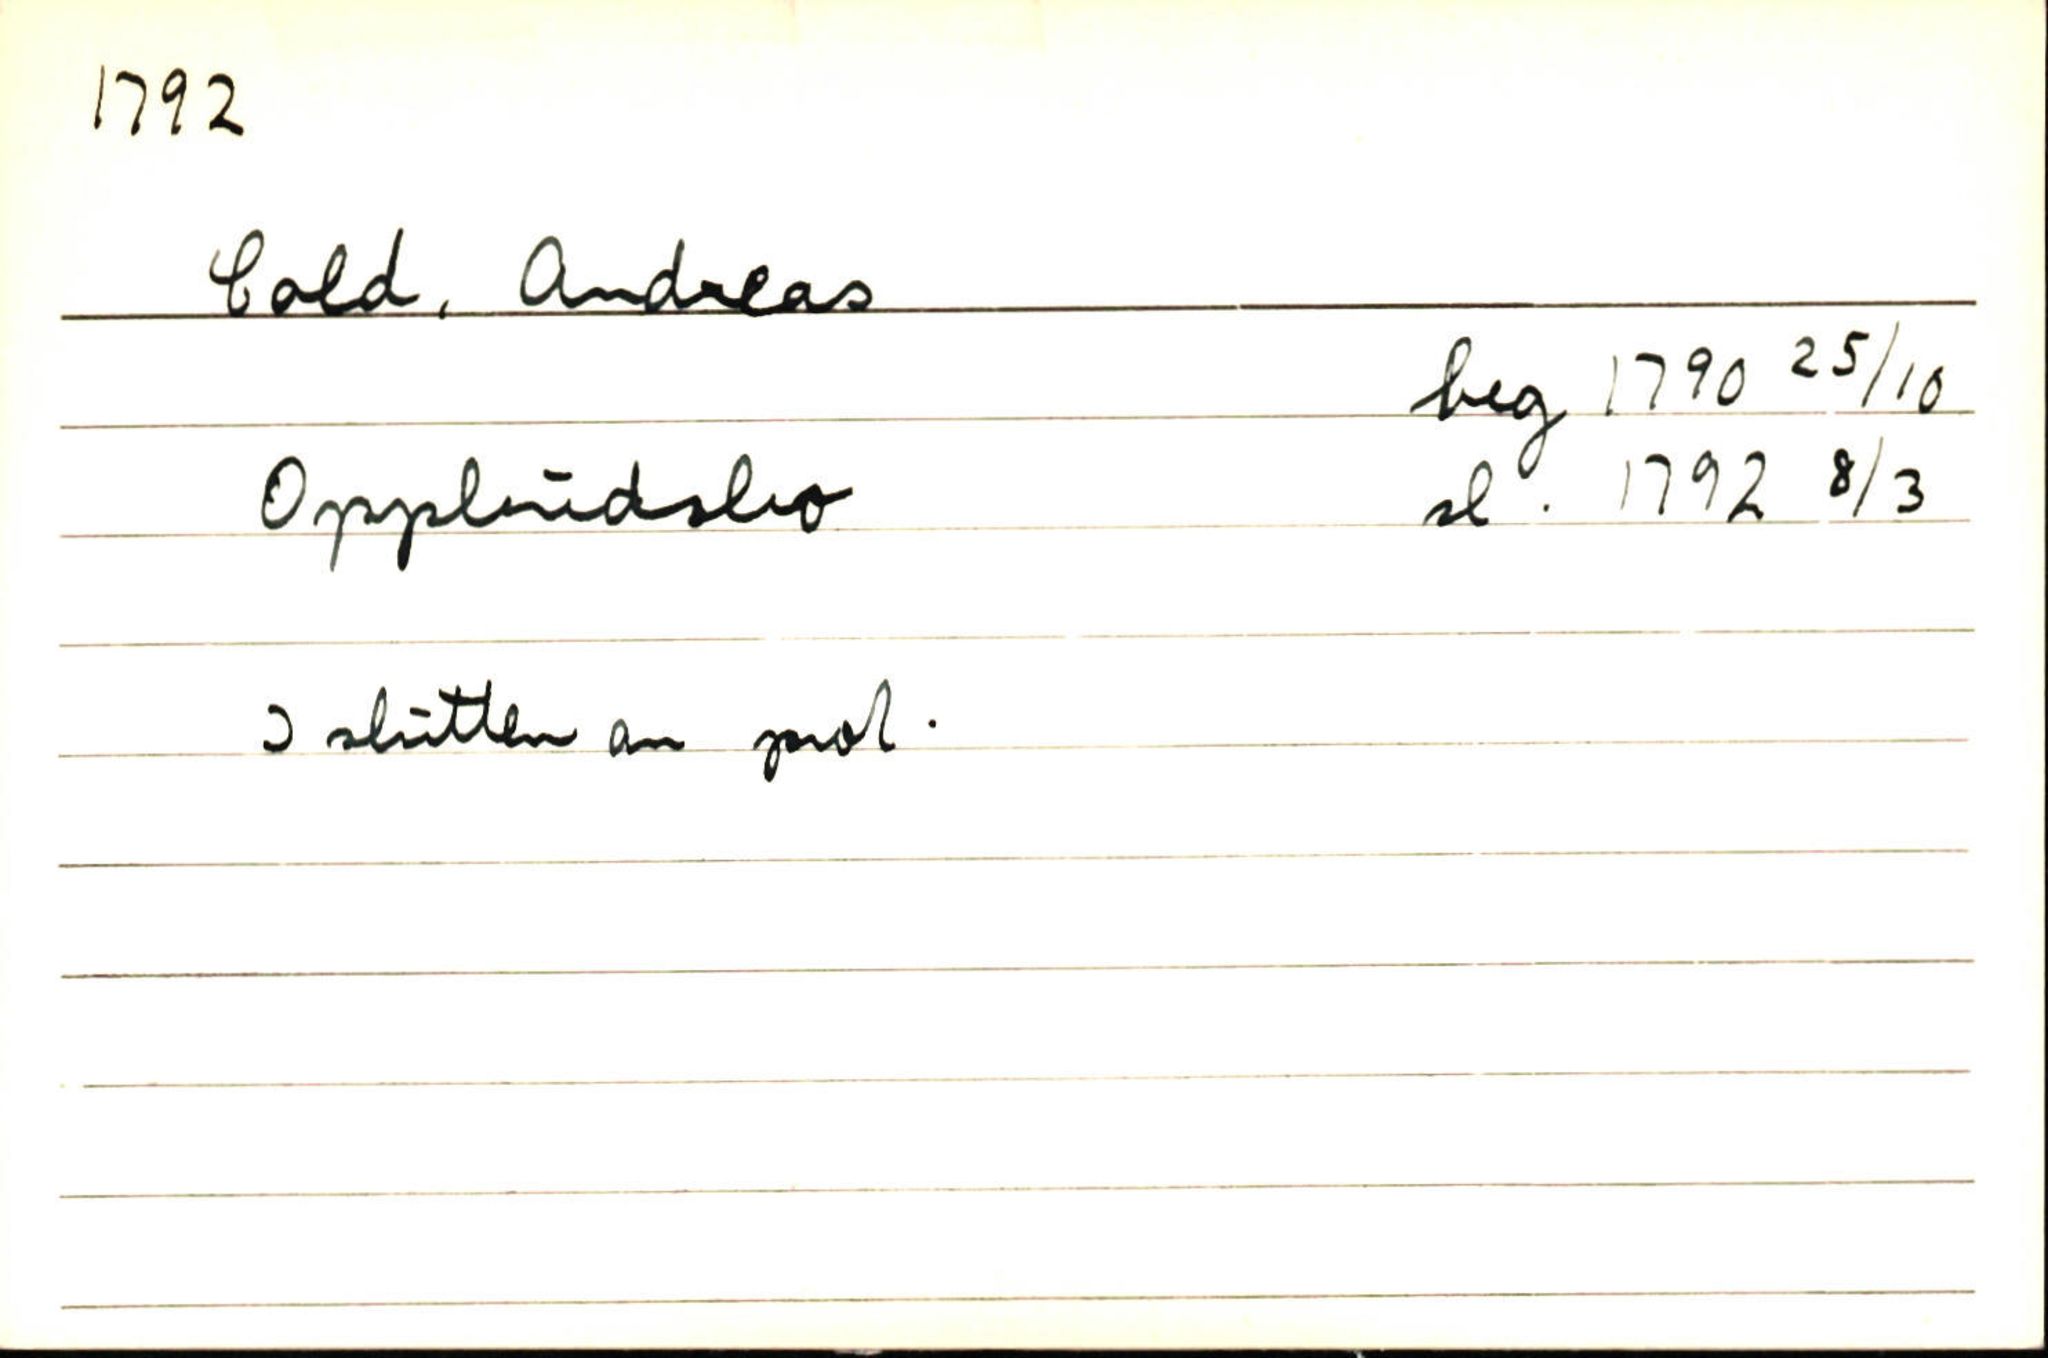 1792
Cold, Andreas
beg 1790 25/10
Oppbudsbo sl. 1792 8/3
I slutten an prot.